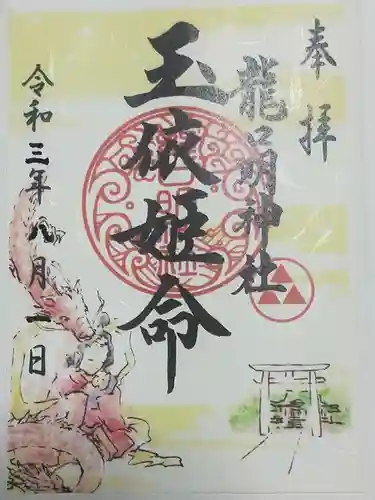 奉拝
龍口明神社
玉依姫命
令和三年八月一日